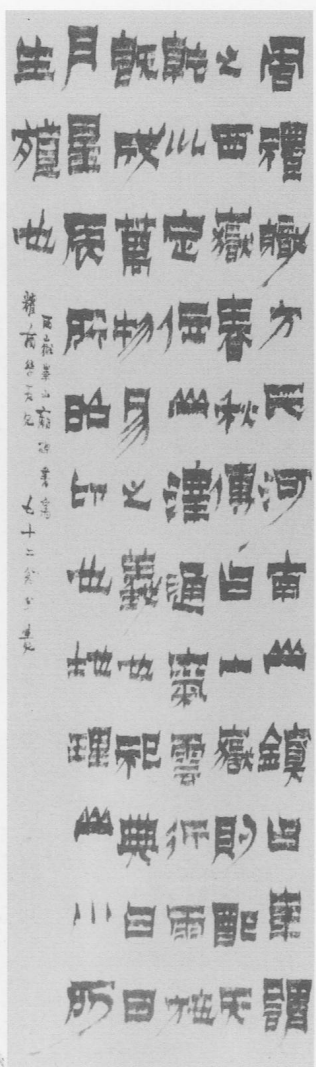 周禮職方氏河南山鎮曰華謂
之西嶽春秋傳曰一嶽則配天
乾巛定位山澤通氣雲行雨施
既成萬物易之義也祀典曰日
月星辰所昭卬也地理山川所
生殖也
西嶽華山廟碑
九十二翁